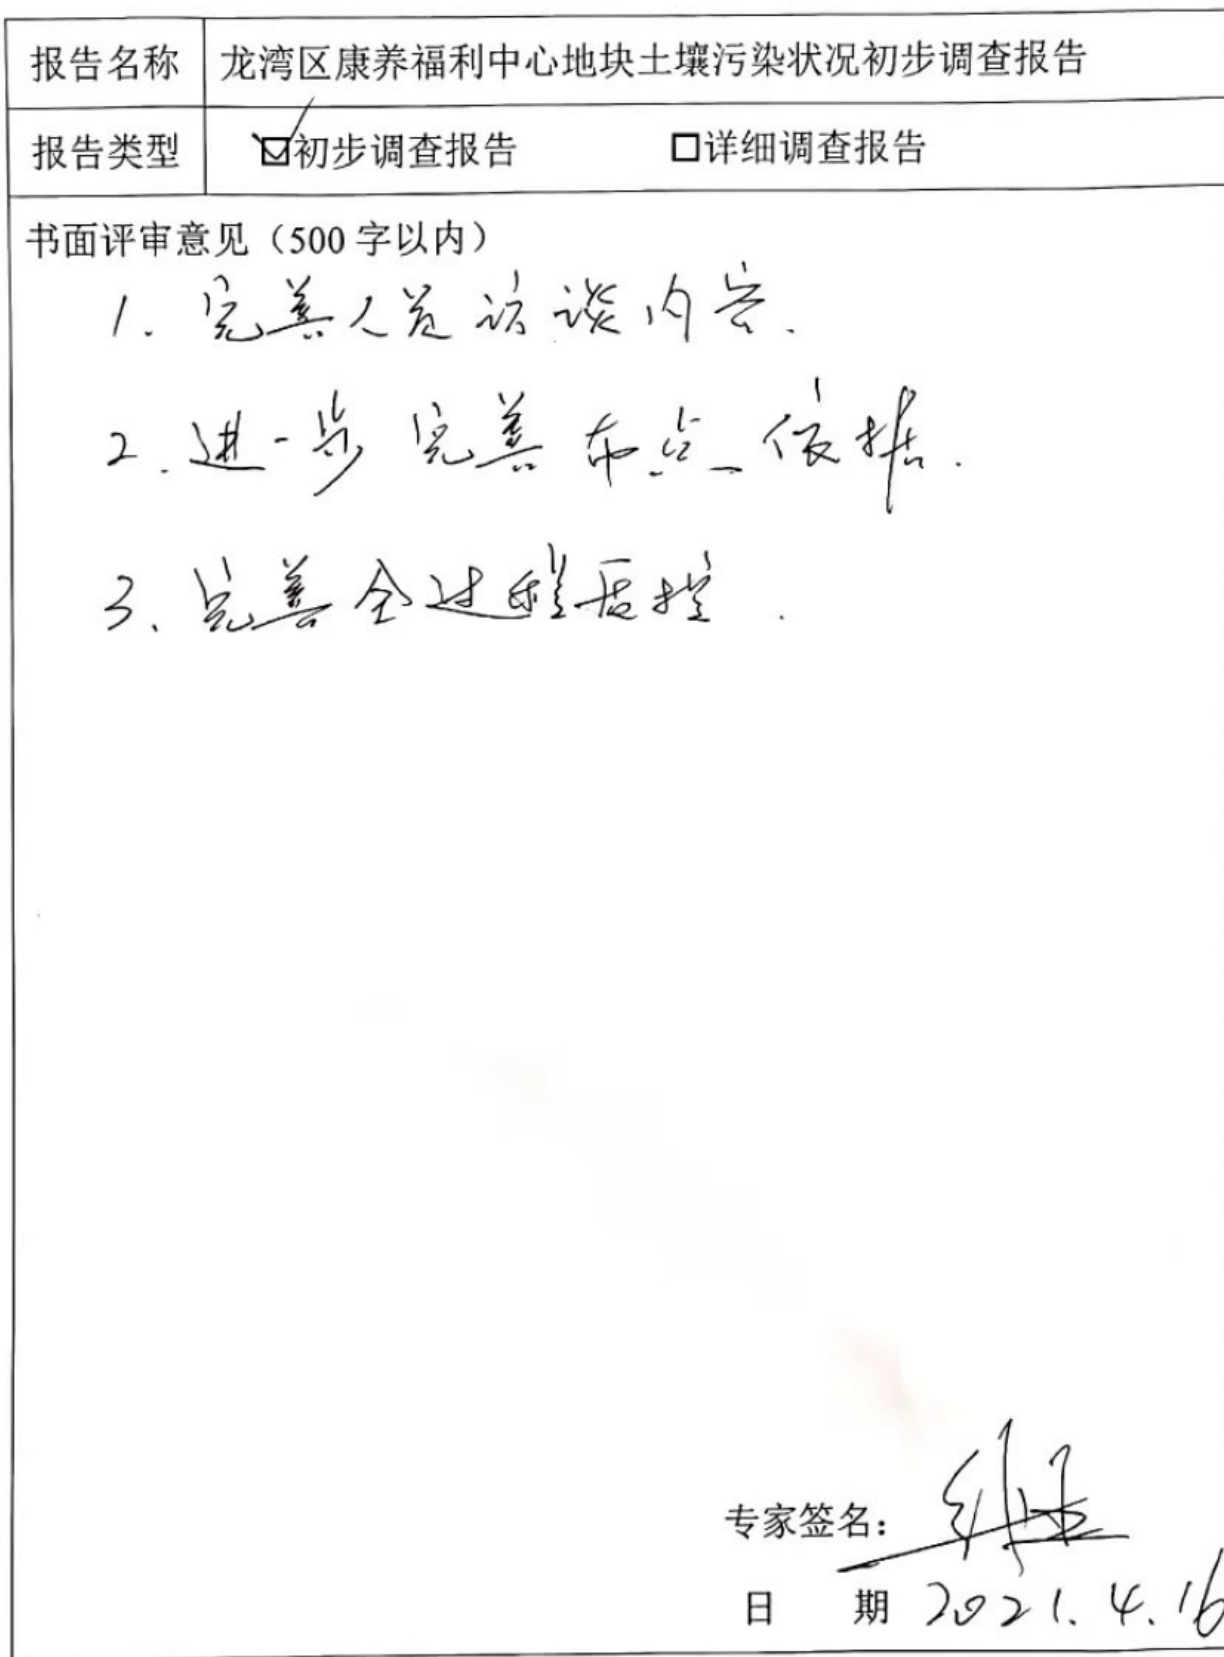 报告名称 龙湾区康养福利中心地块土壤污染状况初步调查报告
报告类型 ☑初步调查报告 □详细调查报告
书面评审意见（500 字以内）
1. 完善人员访谈内容.
2. 进一步完善布点依据.
3. 完善全过程质控.
专家签名：
日 期 2021.4.16